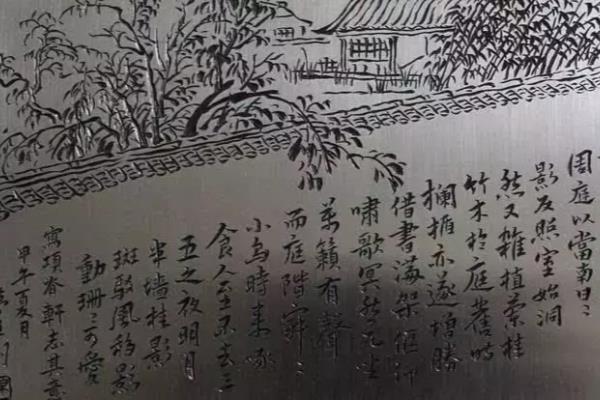 周庭以當南日〻
影反照室始洞
然又雜植蘭桂
竹木於庭舊時
欄楯亦遂增勝
借書滿架偃仰
嘯歌冥然兀坐
萬籟有聲
而庭階寂〻
小鳥時來啄
食人至不去三
五之夜明月
半墙桂影
斑駁風移影
動珊〻可愛
寫項脊軒志其意
甲午夏月